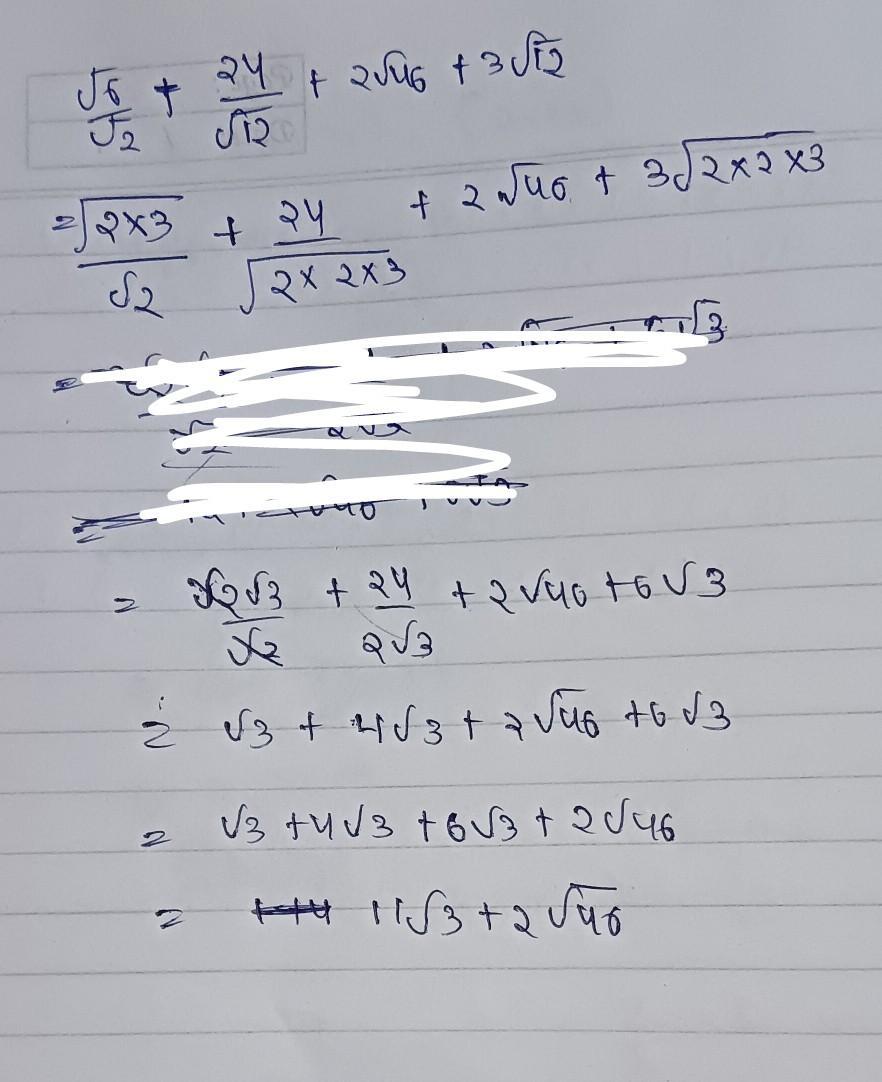 √6/√2 + 24/√12 + 2√46 + 3√12
= √2×3/√2 + 24/√2×2×3 + 2√46 + 3√2×2×3
= √2√3/√2 + 24/2√3 + 2√46 + 6√3
= √3 + 4√3 + 2√46 + 6√3
= √3 + 4√3 + 6√3 + 2√46
= 11√3 + 2√46